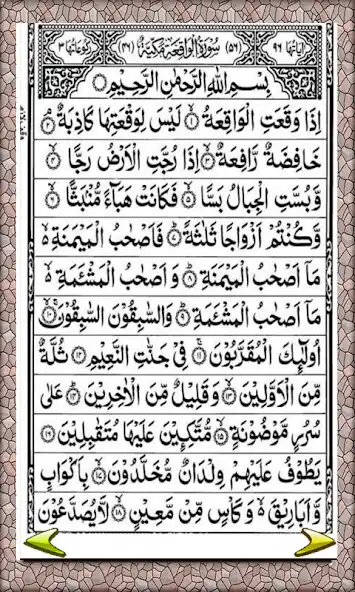 اٰيَاتُهَا ٩٦ (٥٦) سُوْرَةُ الْوَاقِعَةِ مَكِّيَّةٌ (٤٦) رُكُوْعَاتُهَا ٣
بِسْمِ اللّٰهِ الرَّحْمٰنِ الرَّحِيْمِ
اِذَا وَقَعَتِ الْوَاقِعَةُ ۙ‏﴿١﴾ لَيْسَ لِوَقْعَتِهَا كَاذِبَةٌ ۘ‏﴿٢﴾
خَافِضَةٌ رَّافِعَةٌ ۙ‏﴿٣﴾ اِذَا رُجَّتِ الْاَرْضُ رَجًّا ۙ‏﴿٤﴾
وَّبُسَّتِ الْجِبَالُ بَسًّا ۙ‏﴿٥﴾ فَكَانَتْ هَبَآءً مُّنْۢبَثًّا ۙ‏﴿٦﴾
وَّكُنْتُمْ اَزْوَاجًا ثَلٰثَةً ؕ‏﴿٧﴾ فَاَصْحٰبُ الْمَيْمَنَةِ ۙ
مَاۤ اَصْحٰبُ الْمَيْمَنَةِ ؕ‏﴿٨﴾ وَ اَصْحٰبُ الْمَشْـَٔمَةِ ۙ
مَاۤ اَصْحٰبُ الْمَشْـَٔمَةِ ؕ‏﴿٩﴾ وَالسّٰبِقُوْنَ السّٰبِقُوْنَ ۚۙ‏﴿١٠﴾
اُولٰٓئِكَ الْمُقَرَّبُوْنَ ۚ‏﴿١١﴾ فِيْ جَنّٰتِ النَّعِيْمِ ﴿١٢﴾ ثُلَّةٌ
مِّنَ الْاَوَّلِيْنَ ۙ‏﴿١٣﴾ وَقَلِيْلٌ مِّنَ الْاٰخِرِيْنَ ؕ‏﴿١٤﴾ عَلٰى
سُرُرٍ مَّوْضُوْنَةٍ ۙ‏﴿١٥﴾ مُّتَّكِـِٕيْنَ عَلَيْهَا مُتَقٰبِلِيْنَ ﴿١٦﴾
يَطُوْفُ عَلَيْهِمْ وِلْدَانٌ مُّخَلَّدُوْنَ ۙ‏﴿١٧﴾ بِاَكْوَابٍ
وَّ اَبَارِيْقَ ۙ وَ كَاْسٍ مِّنْ مَّعِيْنٍ ۙ‏﴿١٨﴾ لَّا يُصَدَّعُوْنَ